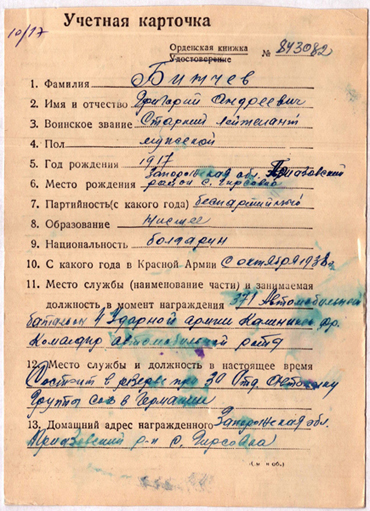 Учетная карточка
10/17
Орденская книжка
Удостоверение № 843082
1. Фамилия Бижчев
2. Имя и отчество Григорий Андреевич
3. Воинское звание Старший лейтенант
4. Пол мужской
5. Год рождения 1917
Запорожская обл. Приазовский
6. Место рождения район с. Гирсовка
7. Партийность (с какого года) беспартийный
8. Образование Низшее
9. Национальность болгарин
10. С какого года в Красной Армии с октября 1938 г.
11. Место службы (наименование части) и занимаемая
должность в момент награждения 371 Автомобильный
батальон 4 Ударной армии Калининск. фр.
Командир автомобильной роты
12. Место службы и должность в настоящее время
Состоит в резерве при 30 Отд.
Группа в Германии
13. Домашний адрес награжденного Запорожская обл.
Приазовский р-н с. Гирсовка